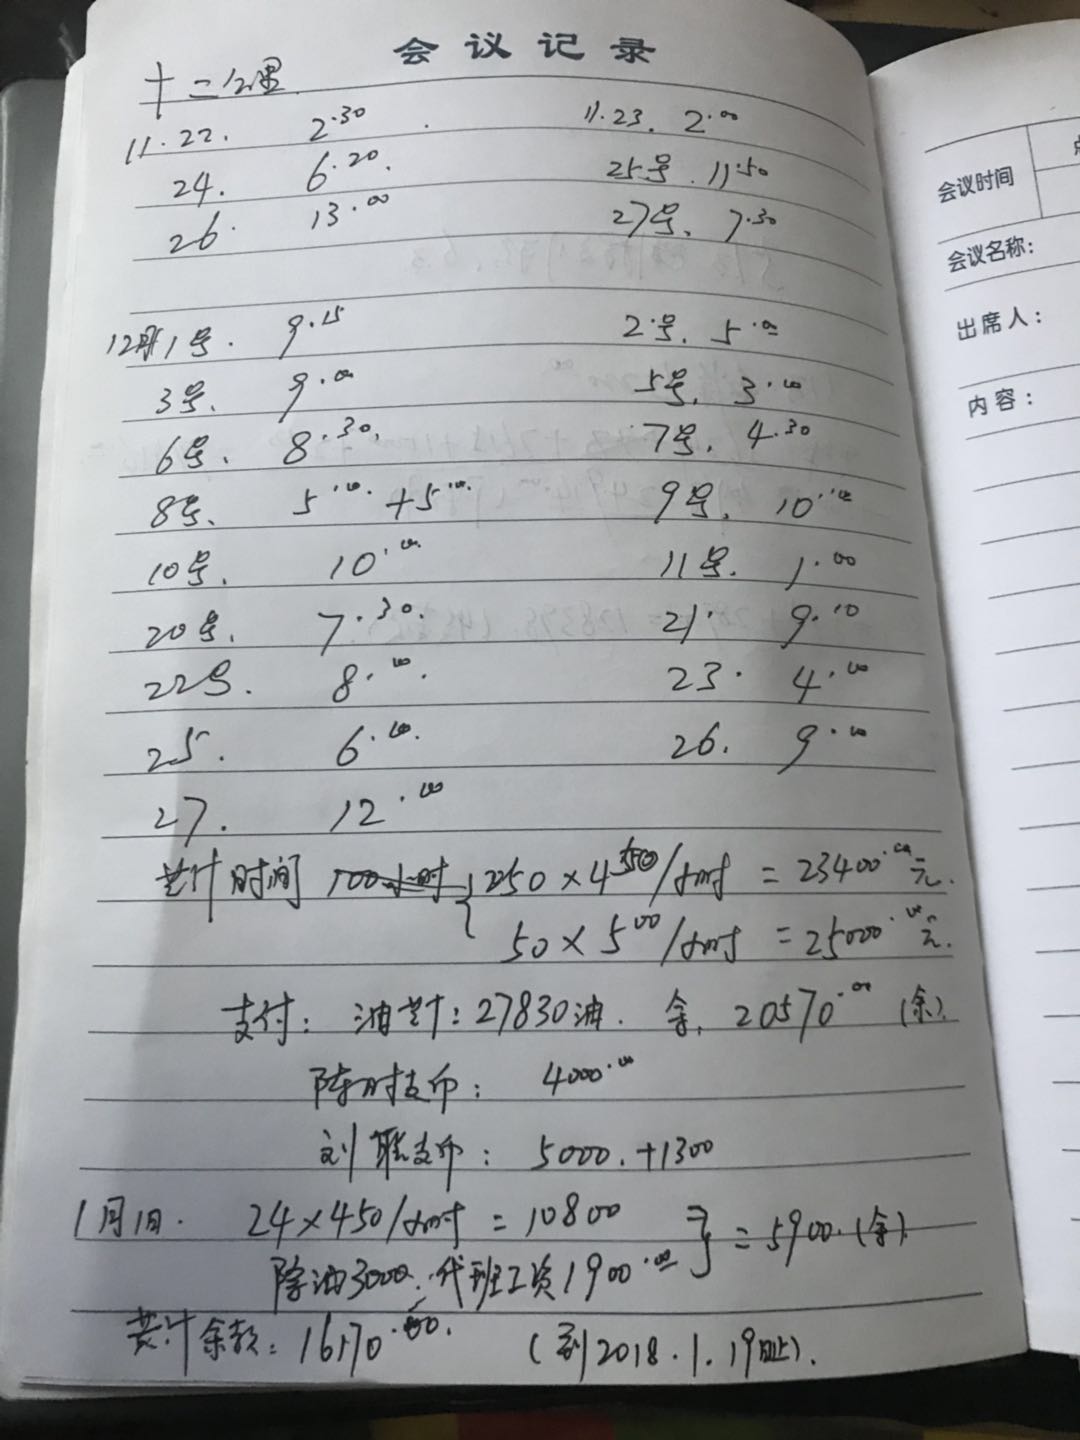 会议记录
十二公里
11.22. 2.30 11.23. 2.00
24. 6.20. 25号. 11.50
26. 13.00 27号. 7.30
12月1号. 9.15 2号. 5.00
3号. 9.00 5号. 3.00
6号. 8.30. 7号. 4.30
8号. 5.00. +5.00. 9号. 10.00
10号. 10.00. 11号. 1.00
20号. 7.30. 21. 9.10
22号. 8.00. 23. 4.00
25. 6.00. 26. 9.00
27. 12.00
共计时间 100小时 250×450/小时 = 23400.00元.
50×500/小时 = 25000.00元.
支付: 油共计: 27830油. 余. 20570.00 (余).
陈时支币: 4000.00
刘联支币: 5000.+1300
1月1日. 24×450/小时 = 10800
除油3000. 代班工资1900.00 } = 5900.(余).
共计余款: 16170.00. (到2018.1.19日止).
会议时间
会议名称:
出席人:
内容: